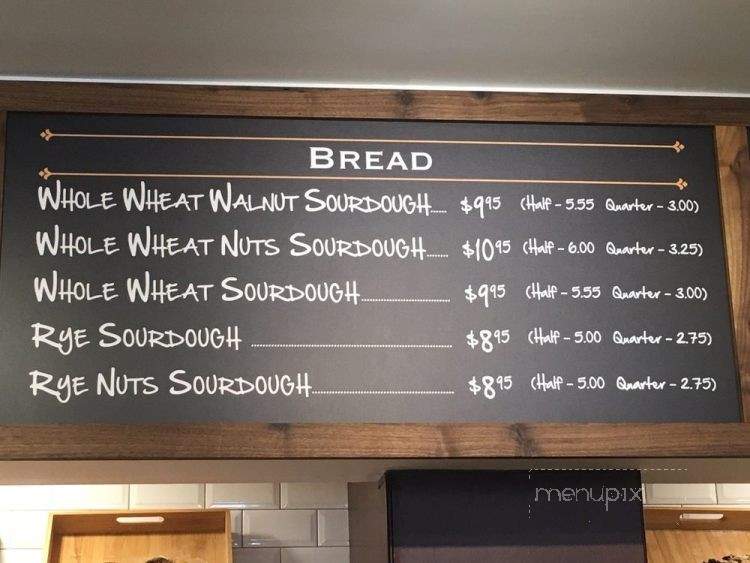 BREAD
WHOLE WHEAT WALNUT SOURDOUGH..... $9.95 (Half - 5.55 Quarter - 3.00)
WHOLE WHEAT NUTS SOURDOUGH...... $10.95 (Half - 6.00 Quarter - 3.25)
WHOLE WHEAT SOURDOUGH.................... $9.95 (Half - 5.55 Quarter - 3.00)
RYE SOURDOUGH ............................................. $8.95 (Half - 5.00 Quarter - 2.75)
RYE NUTS SOURDOUGH................................ $8.95 (Half - 5.00 Quarter - 2.75)
menupix